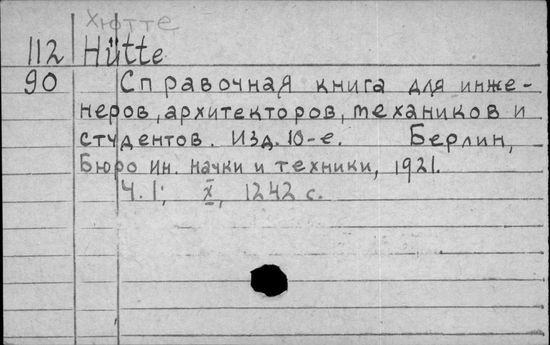 Хютте
112 Hütte
90 Справочная книга для инже-
неров, архитекторов, механиков и
студентов. Изд. 10-е. Берлин,
Бюро ин. науки и техники, 1921.
Ч. I; X, 1242 с.